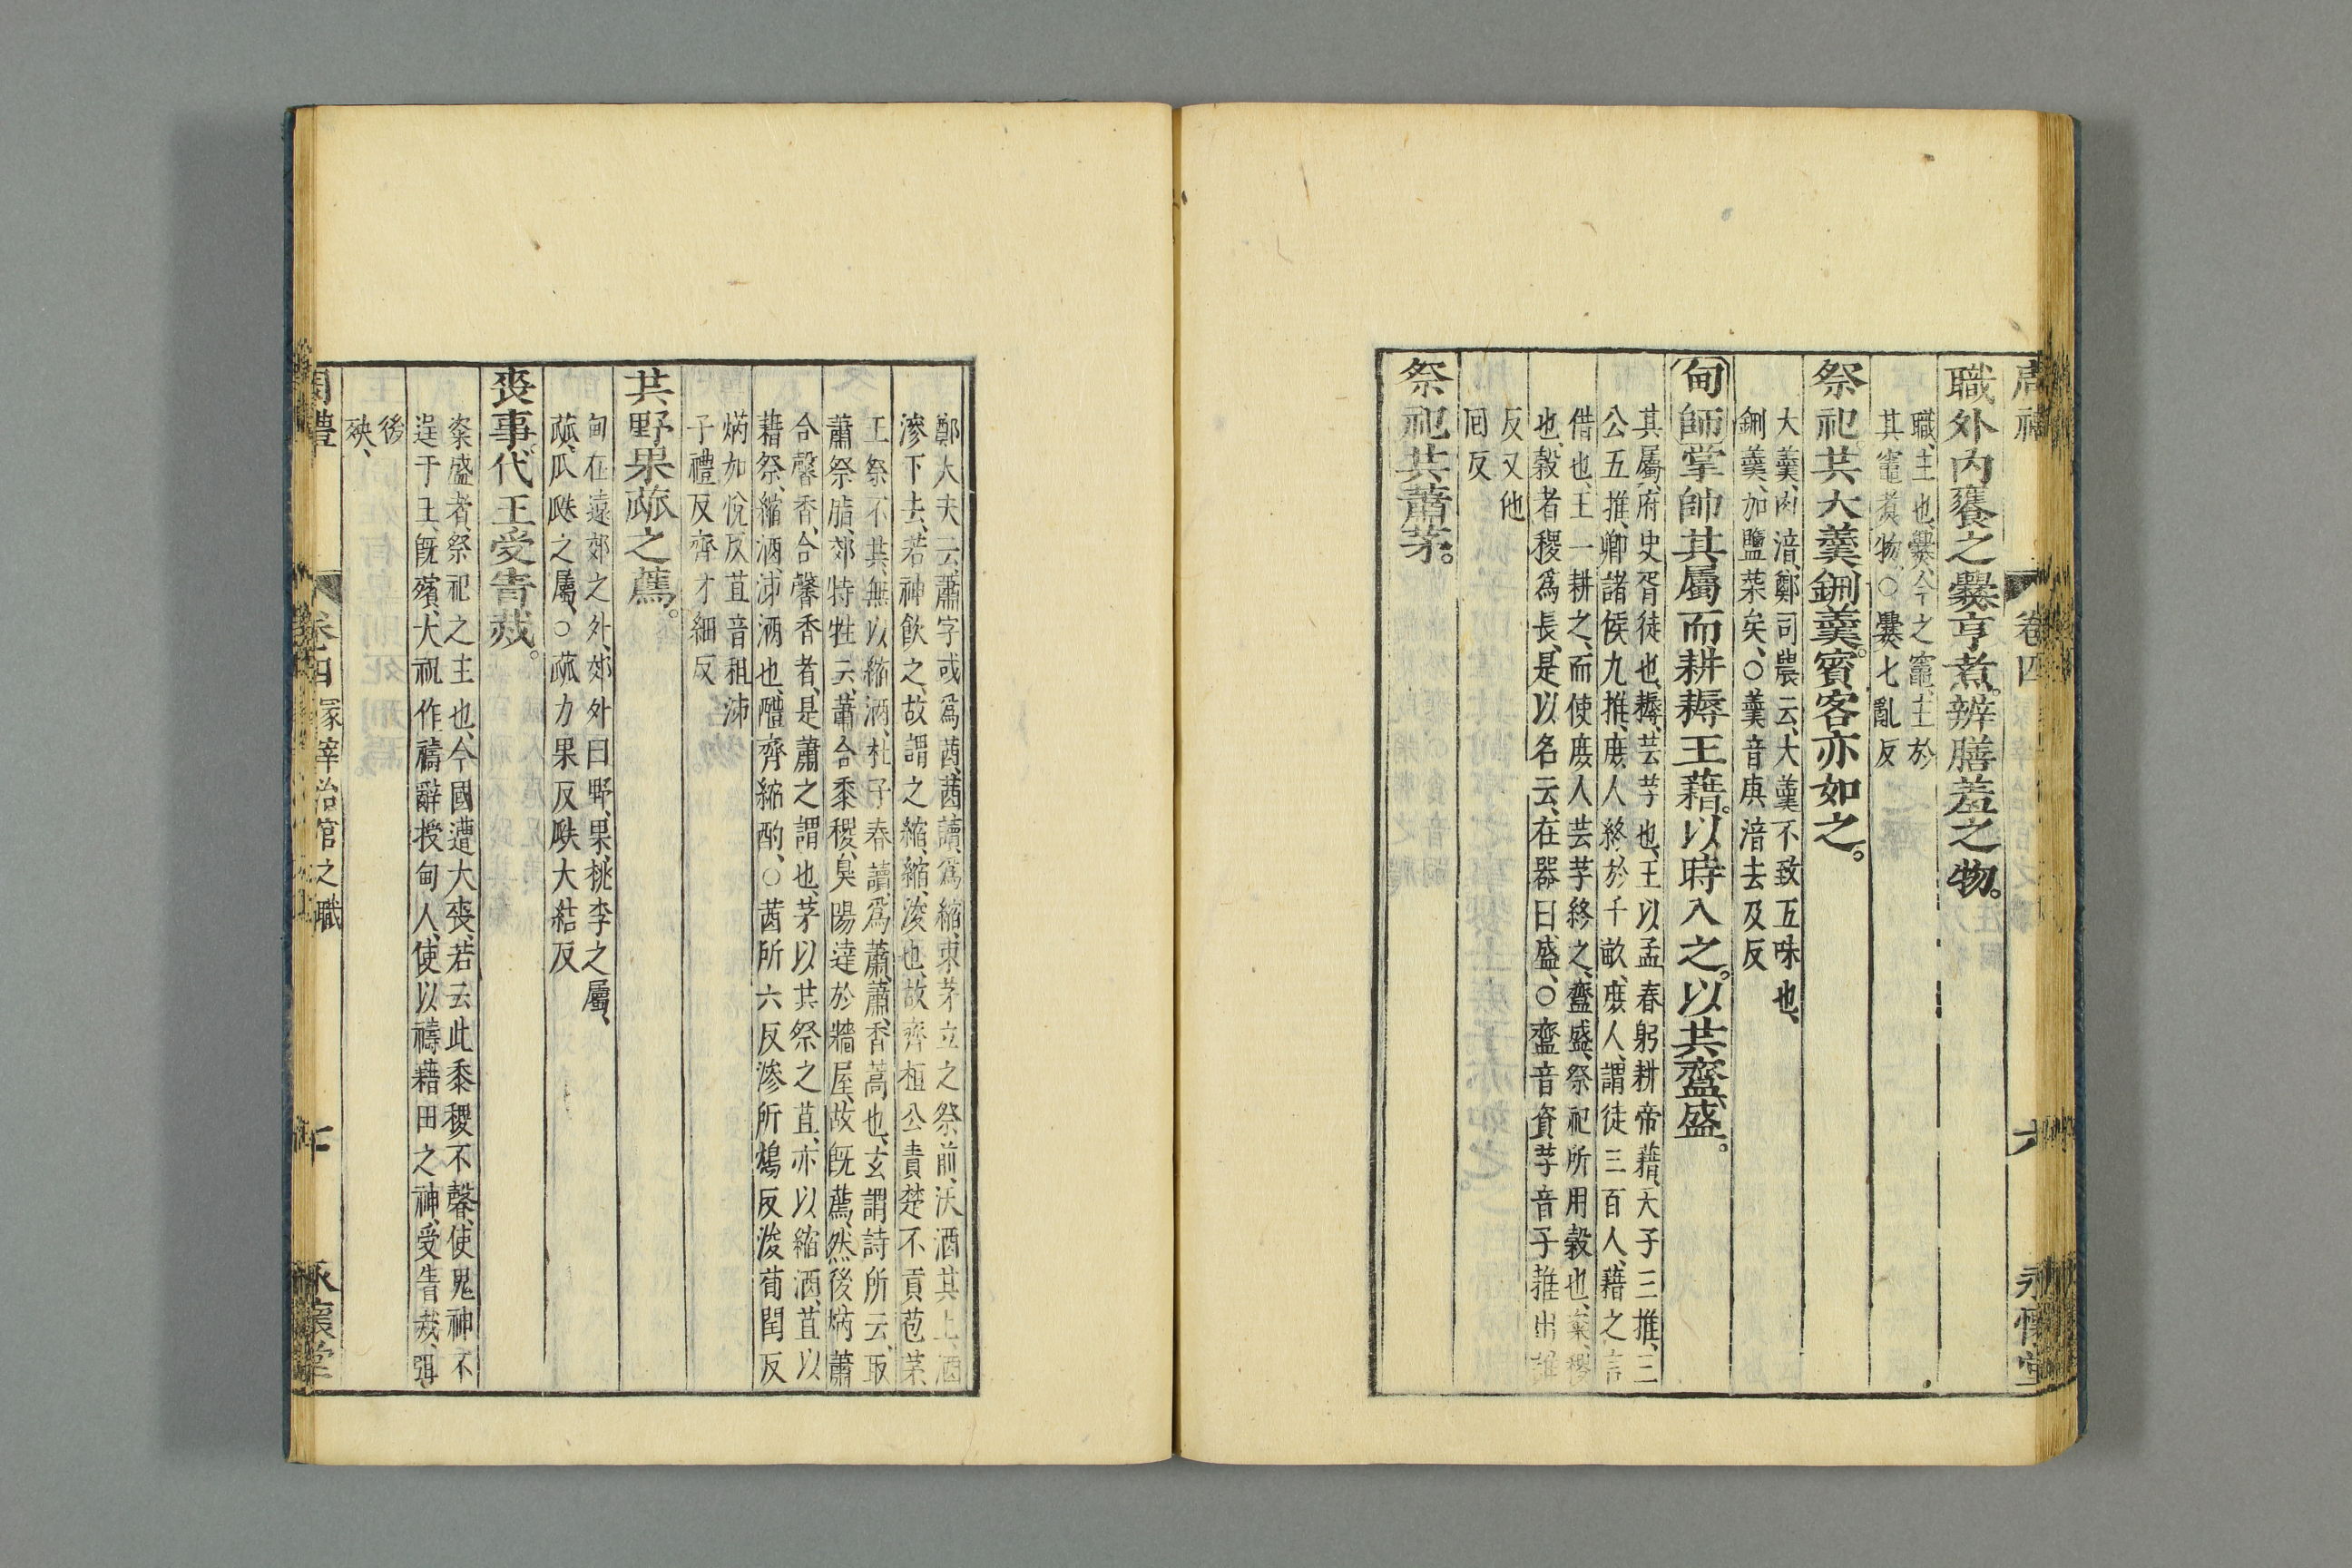 周禮 卷四 六 永懷堂
職外內饔之爨亨煮。辨膳羞之物。
職、主也、爨、今之竈、主於
其竈煑物、○爨七亂反
祭祀。共大羹鉶羹。賓客亦如之。
大羹、肉湇、鄭司農云、大羹不致五味也、
鉶羹、加鹽菜矣、○羹音庚湇去及反
甸師掌帥其屬而耕耨王藉。以時入之。以共齍盛。
其屬、府史胥徒也、耨、芸芓也、王以孟春躬耕帝藉、天子三推、三
公五推、卿諸侯九推、庶人終於千畝、庶人、謂徒三百人、藉之言
借也、王一耕之、而使庶人芸芓終之、齍盛、祭祀所用穀也、粢、稷
也、穀者稷爲長、是以名云、在器曰盛、○齍音資芓音子推出誰
反又他
回反
祭祀共蕭茅。
鄭大夫云、蕭字或爲莤、莤讀爲縮、束茅立之祭前、沃酒其上、酒
滲下去、若神飲之、故謂之縮、縮、浚也、故齊桓公責楚不貢苞茅、
王祭不共、無以縮酒、杜子春讀爲蕭、蕭、香蒿也、玄謂詩所云、取
蕭祭脂、郊特牲云、蕭合黍稷、臭陽達於牆屋、故旣薦、然後焫蕭
合馨香、合馨香者、是蕭之謂也、茅以共祭之苴、亦以縮酒、苴以
藉祭、縮酒、泲酒也、醴齊縮酌、○莤所六反滲所鴆反浚荀閏反
焫如悅反苴音租泲
子禮反齊才細反
共野果蓏之薦。
甸在遠郊之外、郊外曰野、果、桃李之屬、
蓏、瓜瓞之屬、○蓏力果反瓞大結反
喪事。代王受眚烖。
粢盛者、祭祀之主也、今國遭大喪、若云此黍稷不馨、使鬼神不
逞于王、旣殯、大祝作禱辭授甸人、使以禱藉田之神、受眚烖、弭
後
殃、
周禮 卷四 冢宰治官之職 七 永懷堂